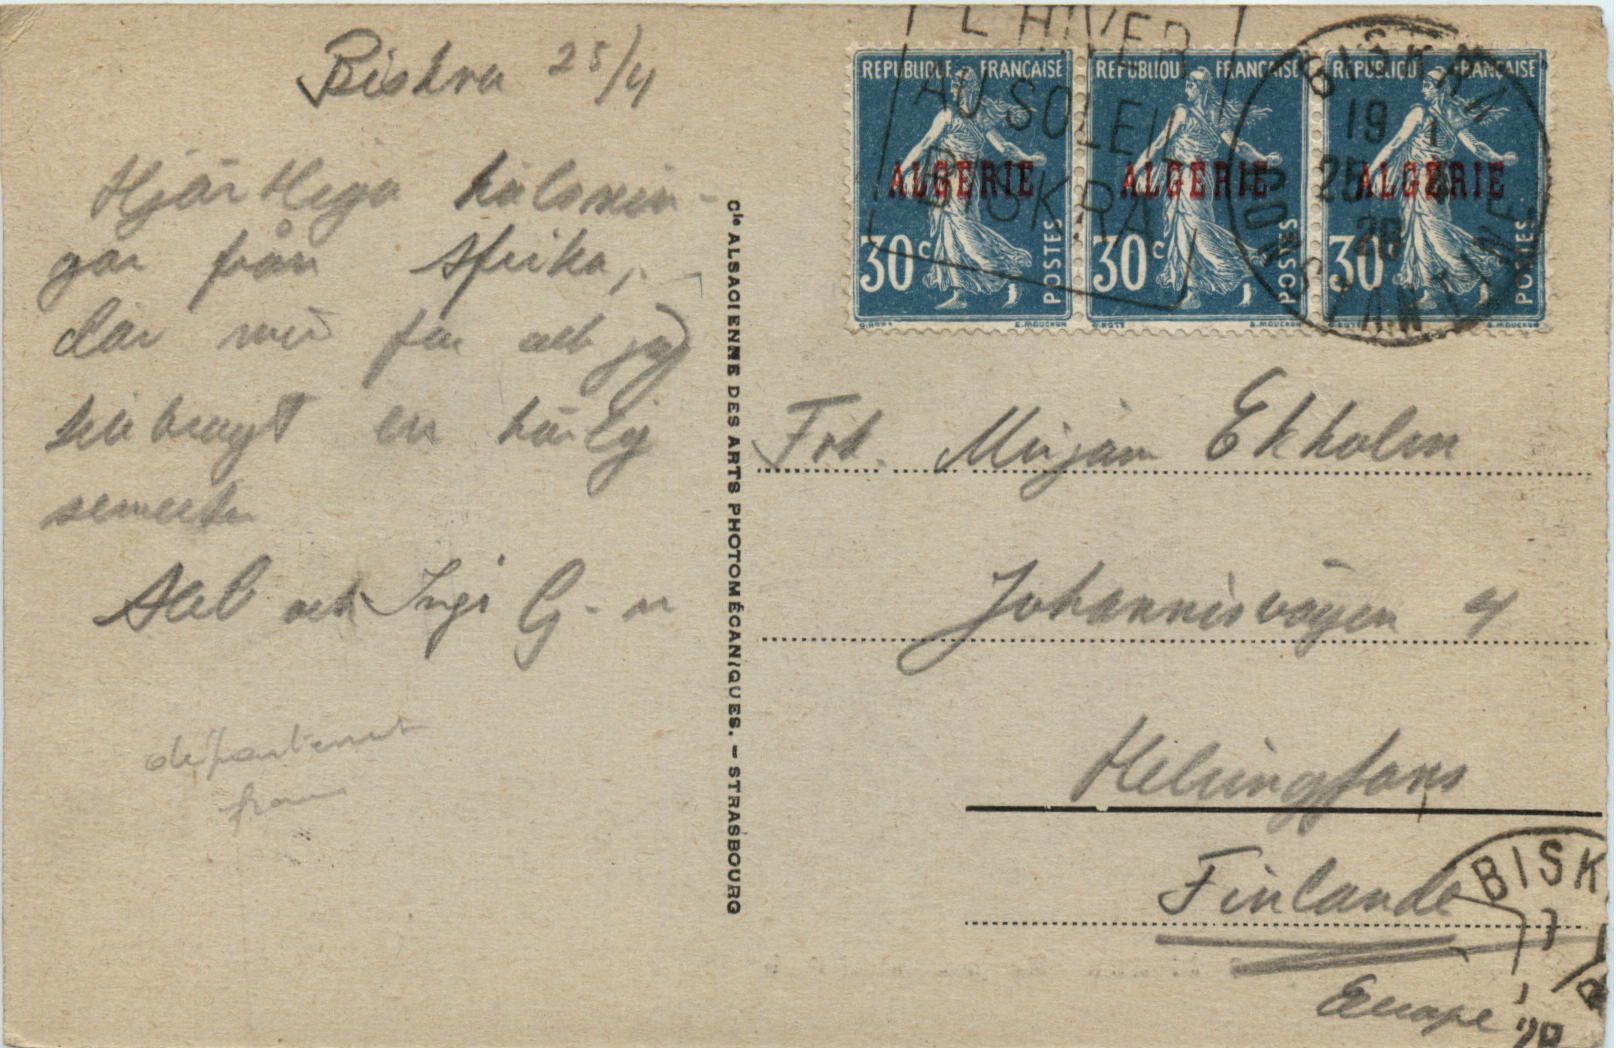 Biskra 25/4
Hjärtliga hälsnin-
gar från Afrika,
där min far och jag
tillbragt en härlig
semester
och Inga G-n
département
L'HIVER
AU SOLEIL
BISKRA
BISKRA
CONSTANTINE
REPUBLIQUE FRANÇAISE
ALGERIE
30c POSTES
REPUBLIQUE FRANÇAISE
ALGERIE
30c POSTES
REPUBLIQUE FRANÇAISE
ALGERIE
30c POSTES
Cie ALSACIENNE DES ARTS PHOTOMÉCANIQUES. - STRASBOURG
Frk. Mirjam Ekholm
Johannisvägen 4
Helsingfors
Finlande
Europe
BISK